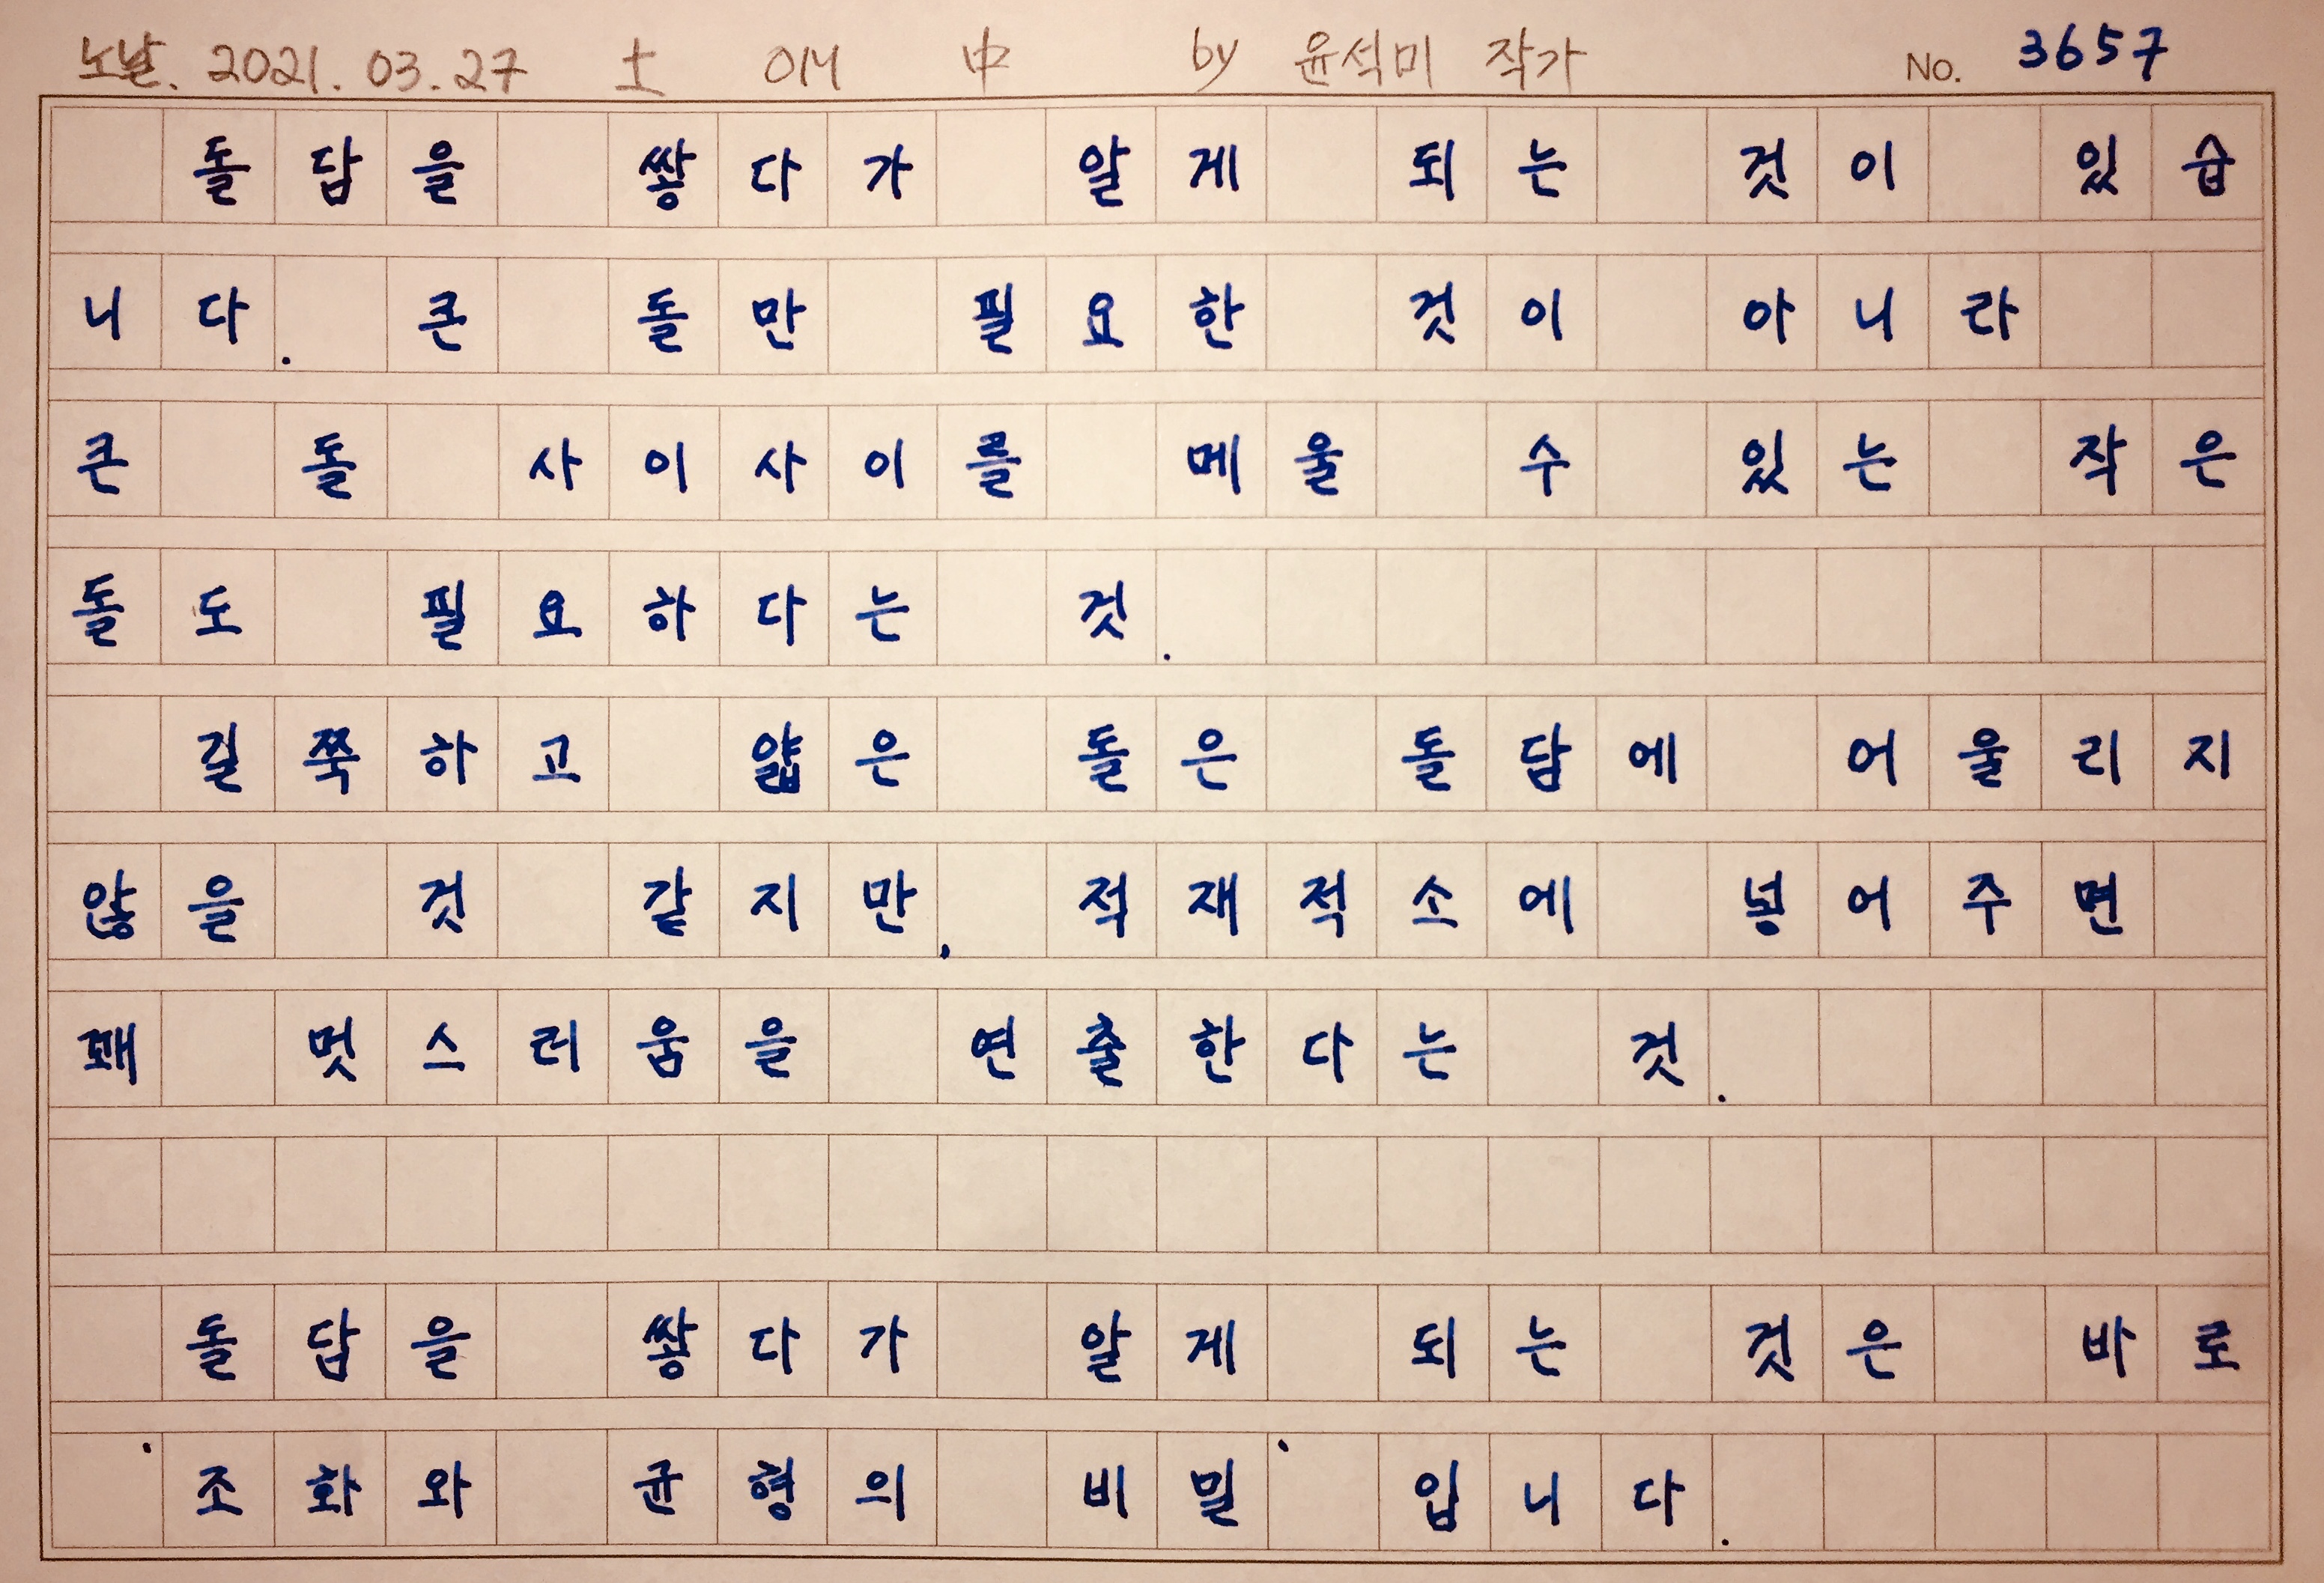 노날. 2021. 03. 27 土 OM 中 by 윤석미 작가 No. 3657
돌담을 쌓다가 알게 되는 것이 있습
니다. 큰 돌만 필요한 것이 아니라
큰 돌 사이사이를 메울 수 있는 작은
돌도 필요하다는 것.
길쭉하고 얇은 돌은 돌담에 어울리지
않을 것 같지만, 적재적소에 넣어주면
꽤 멋스러움을 연출한다는 것.
돌담을 쌓다가 알게 되는 것은 바로
'조화와 균형의 비밀' 입니다.